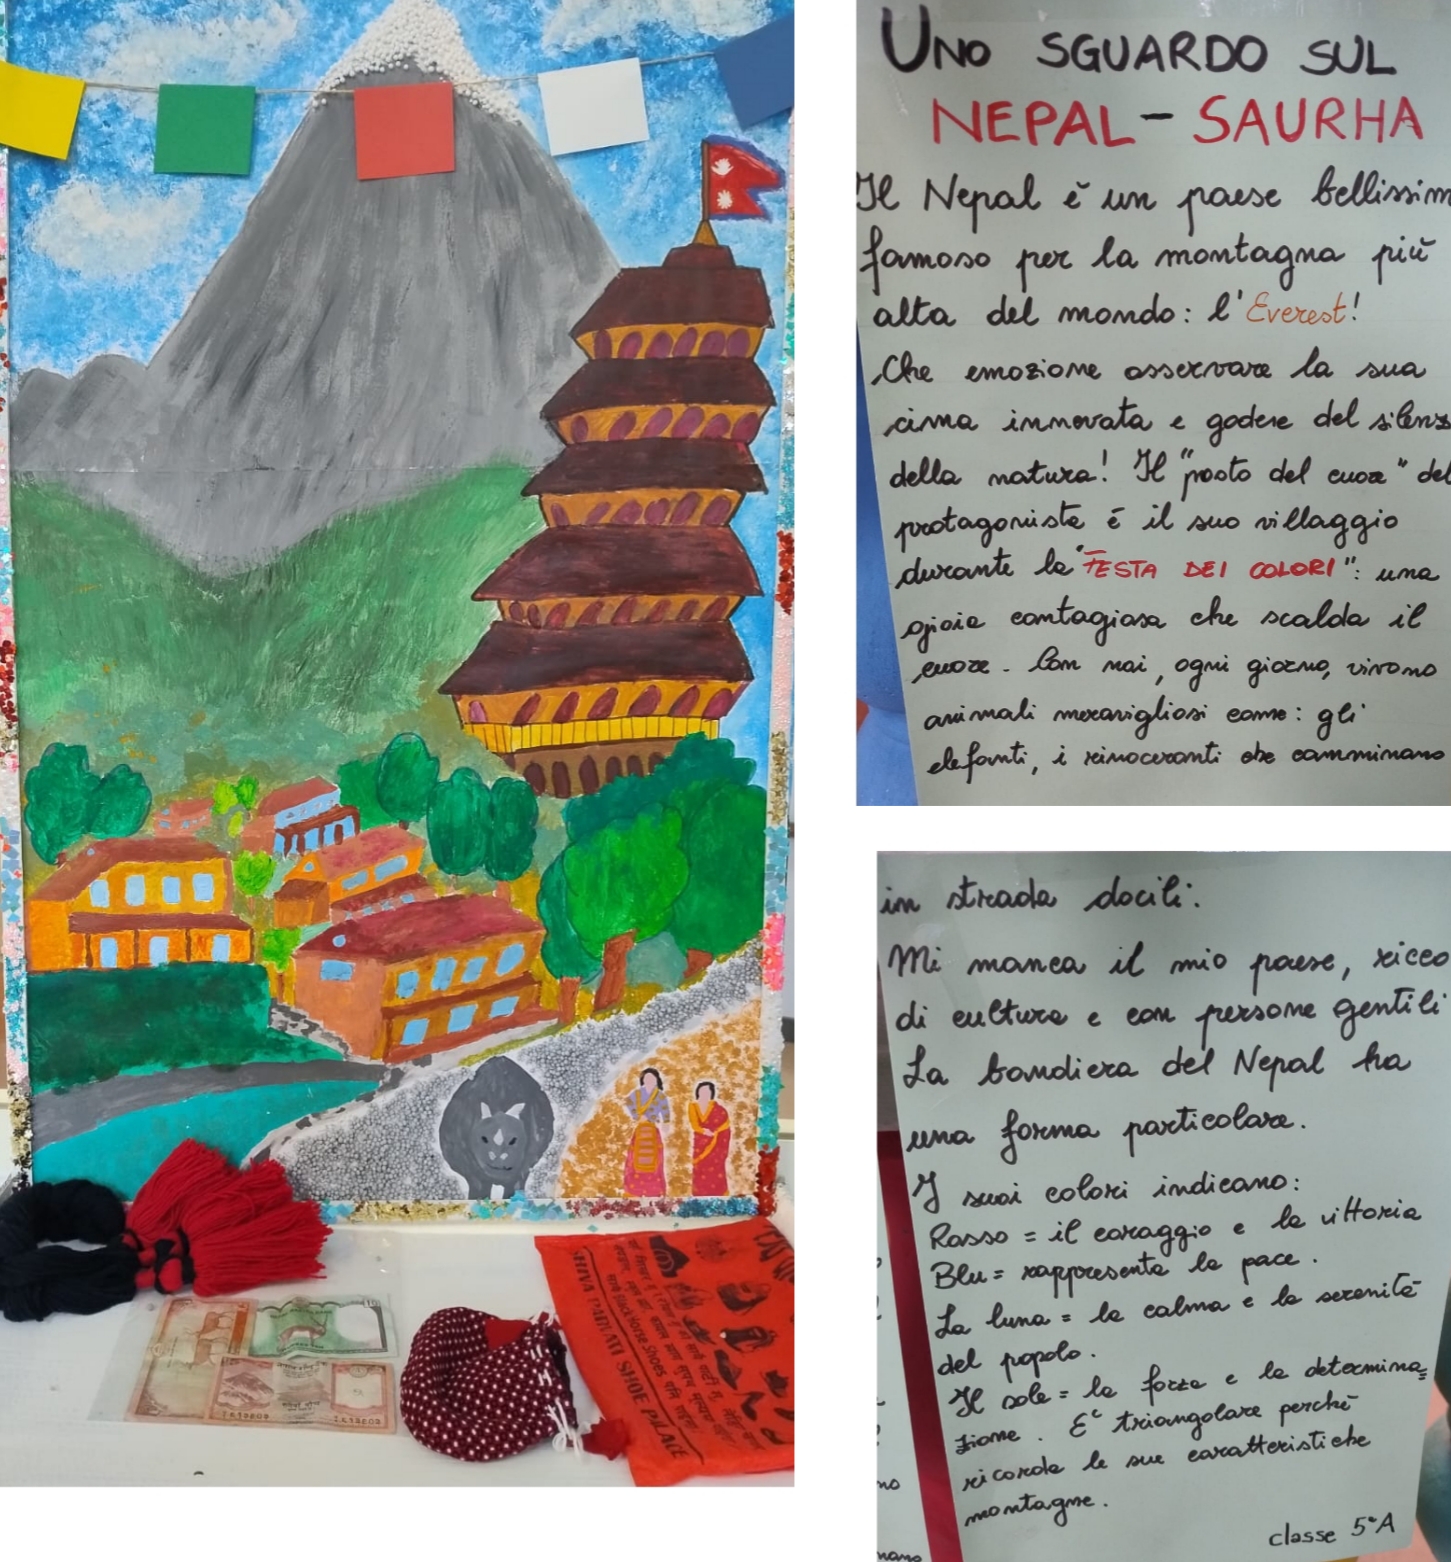 UNO SGUARDO SUL
NEPAL - SAURHA
Il Nepal è un paese bellissim
famoso per la montagna più
alta del mondo: l'Everest!
Che emozione osservare la sua
cima innevata e godere del silenz
della natura! Il "posto del cuore" del
protagonista è il suo villaggio
durante la "FESTA DEI COLORI": una
gioia contagiosa che scalda il
cuore. Con noi, ogni giorno, vivono
animali meravigliosi come: gli
elefanti, i rinoceronti che camminano
in strada docili.
Mi manca il mio paese, ricco
di cultura e con persone gentili
La bandiera del Nepal ha
una forma particolare.
I suoi colori indicano:
Rosso = il coraggio e la vittoria
Blu = rappresenta la pace.
La luna = la calma e la serenità
del popolo.
Il sole = la forza e la determina=
zione. E' triangolare perchè
ricorda le sue caratteristiche
montagne.
classe 5ªA
SHIVA PARVATI SHOE PALACE
BlackHorse Shoes
10